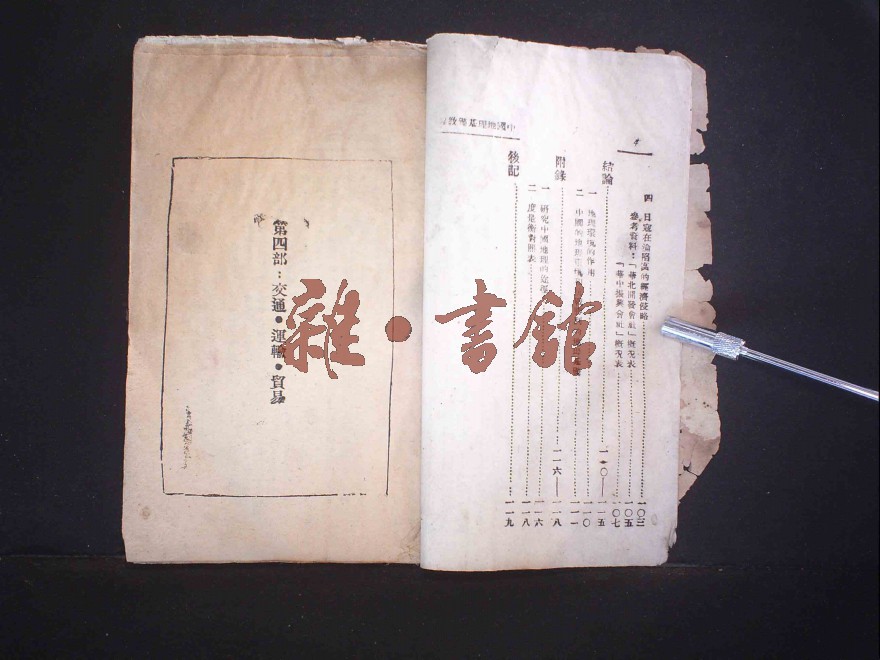 中國地理基礎教
4
四 日寇在淪陷區的經濟侵略……一〇三
參考資料：「華北開發會社」概況表……一〇五
「華中振興會社」概況表……一〇七
結論……一一〇—一一五
一 地理環境的作用……一一〇
二 中國的地理環境……一一一
附錄……一一六—一一八
一 研究中國地理的……一一六
二 度量衡對照表……一一八
後記……一一九
第四部：交通•運輸•貿易
雜•書館